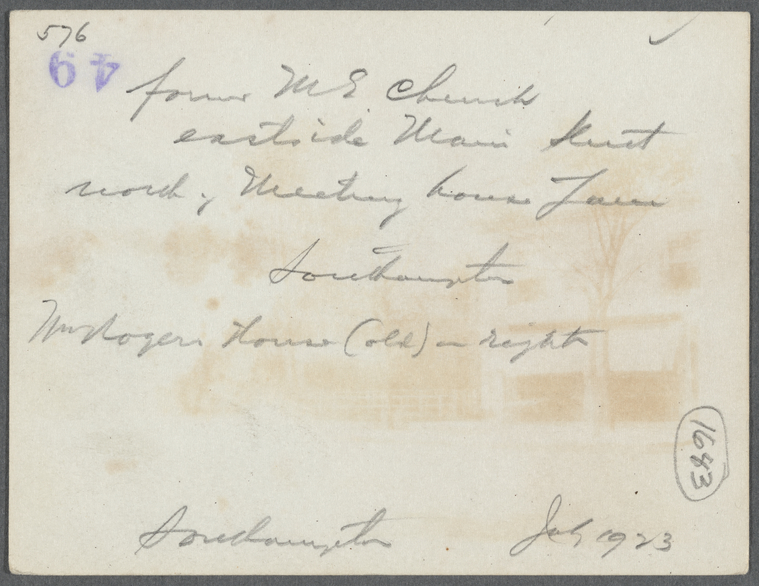 576
49
former M E Church
east side Main Street
north of Meeting house Lane
Southampton
Wm Rogers House (old) on right
1683
Southampton July 1923